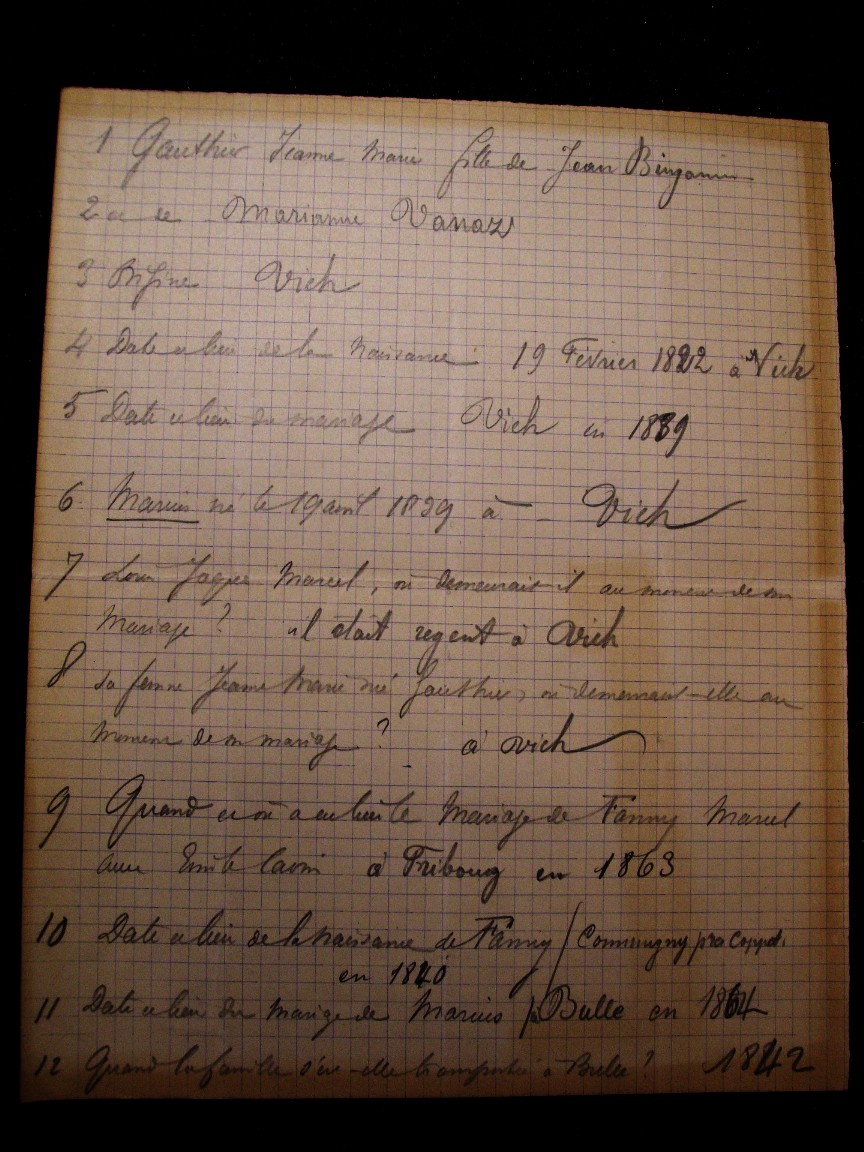 1 Gauthier Jeanne Marie fille de Jean Binjamin
2 et de Marianne Vanaz
3 Vich
4 Date et lieu de la naissance : 19 Février 1822 à Vich
5 Date et lieu du mariage Vich en 1839
6 Marius né le 19 avril 1839 à Vich
7 Louis Jaques Marcel, où demeurait-il au moment de son
mariage ? il était regent à Vich
8 Sa femme Jeanne Marie née Gauthier, où demeurait-elle au
moment de son mariage ? à Vich
9 Quand et où a eu lieu le Mariage de Fanny Marcel
avec Emile à Fribourg en 1863
10 Date et lieu de la naissance de Fanny / Commugny près Coppet
en 1840
11 Date et lieu du mariage de Marius / à Bulle en 1864
12 Quand la famille s'est-elle transportée à Bulle ? 1842